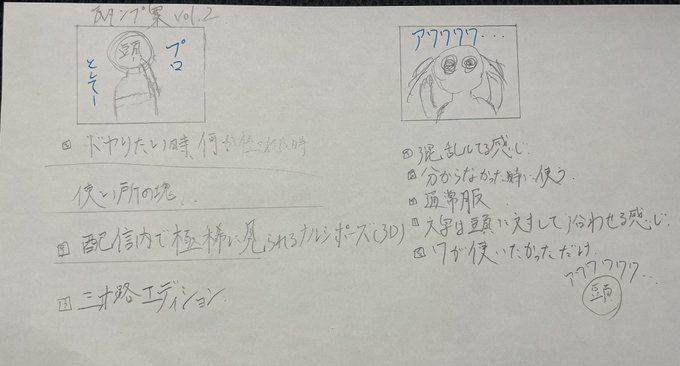 スタンプ案 vol.2
プロ
として
頭
ドヤりたい時、何か
使い所の塊
配信内で極稀に見られるナルシポーズ(3D)
三才路エディション
アワワワワ...
混乱してる感じ
分からなかった時に使う
通常服
文字は頭に対して沿わせる感じ
ワが使いたかっただけ
アワワワワ...
頭